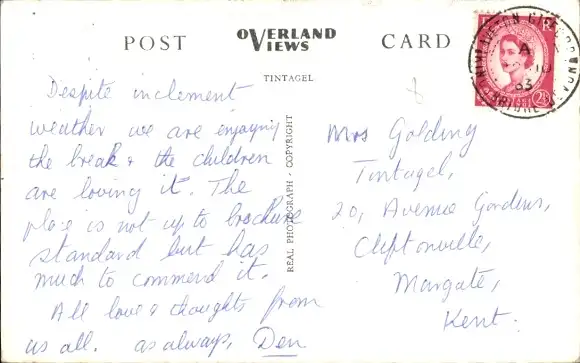 POST OVERLAND VIEWS CARD
TINTAGEL
REAL PHOTOGRAPH - COPYRIGHT
Despite inclement
weather we are enjoying
the break & the children
are loving it. The
place is not up to brochure
standard but has
much to commend it.
All love & thoughts from
us all. as always, Den
Mrs Golding
Tintagel,
20, Avenue Gardens,
Cliftonville,
Margate,
Kent.
A
10
63
2½